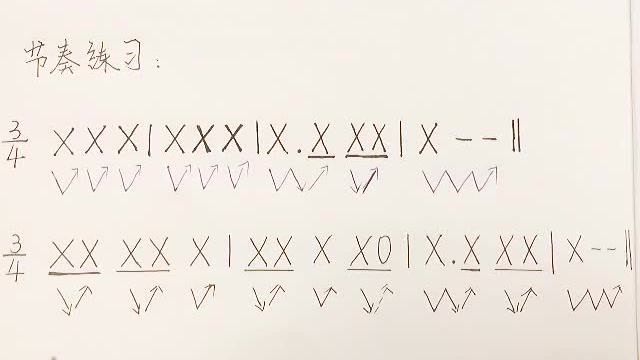 节奏练习：
3/4 X X X | X X X | X . X XX | X - - ||
3/4 XX XX X | XX X X0 | X . X XX | X - - ||